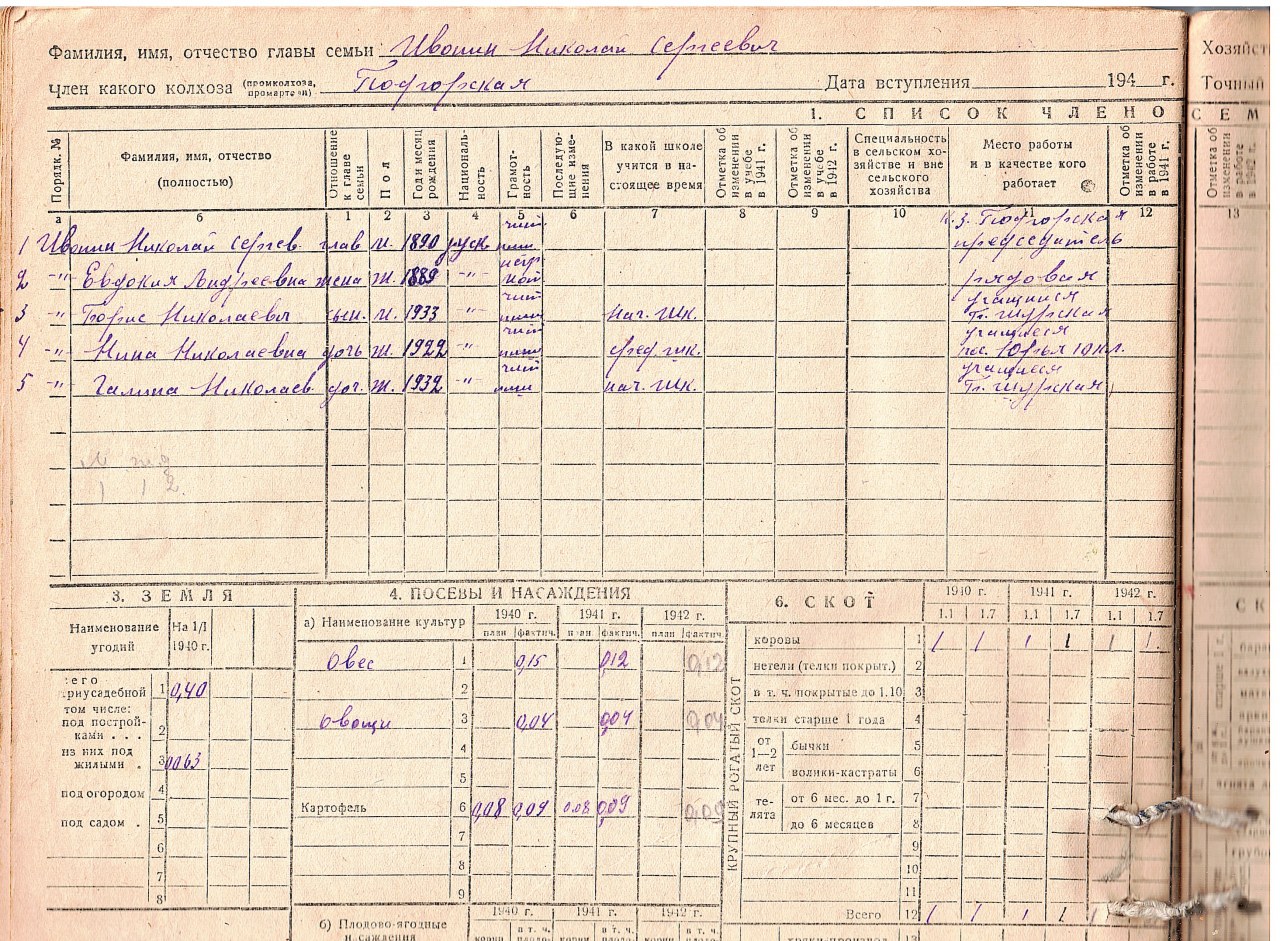 Фамилия, имя, отчество главы семьи Ивонин Николай Сергеевич
Член какого колхоза (промколхоза, промартели) Подгорская Дата вступления 194 г.
Хозяйст
Точный
1. СПИСОК ЧЛЕНО
СЕМ
Порядк. № Фамилия, имя, отчество (полностью) Отношение к главе семьи Пол Год и месяц рождения Националь-ность Грамот-ность Последую-щие изме-нения В какой школе учится в на-стоящее время Отметка об изменении в учебе в 1941 г. Отметка об изменении в учебе в 1942 г. Специальность в сельском хо-зяйстве и вне сельского хозяйства Место работы и в качестве кого работает Отметка об изменении в работе в 1941 г. Отметка об изменении в работе в 1942 г.
а б 1 2 3 4 5 6 7 8 9 10 11 12 13
1 Ивонин Николай Сергев. глав м. 1890 руск Подгорская председатель
2 -"- Евдокия Андреевна жена ж. 1889 -"- рядовая
3 -"- Борис Николаевич сын. м. 1933 -"- нач. шк. учащиися
4 -"- Нина Николаевна дочь ж. 1922 -"- сред. шк. учащиеся 10 кл.
5 -"- Галина Николаев. доч. ж. 1932 -"- нач. шк. учащиеся
М
1 1 2
3. ЗЕМЛЯ
Наименование угодий На 1/I 1940 г.
приусадебной 1 0,40
том числе:
под построй-ками . . . 2
из них под жилыми . 3 0063
под огородом 4
под садом . 5
6
7
8
4. ПОСЕВЫ И НАСАЖДЕНИЯ
а) Наименование культур 1940 г. 1941 г. 1942 г.
план фактич. план фактич. план фактич.
Овес 1 0,15 0,12 0,12
2
Овощи 3 0,04 0,04 0,04
4
5
Картофель 6 0,08 0,09 0.08 0,09 0,09
7
8
9
б) Плодово-ягодные насаждения 1940 г. 1941 г. 1942 г.
6. СКОТ
1940 г. 1941 г. 1942 г.
1.1 1.7 1.1 1.7 1.1 1.7
КРУПНЫЙ РОГАТЫЙ СКОТ
коровы 1 1 1 1 1 1 1.
нетели (телки покрыт.) 2
в т. ч. покрытые до 1.10 3
телки старше 1 года 4
от 1—2 лет бычки 5
волики-кастраты 6
те-лята от 6 мес. до 1 г. 7
до 6 месяцев 8
9
10
11
Всего 12 1 1 1 1 1
13
СК